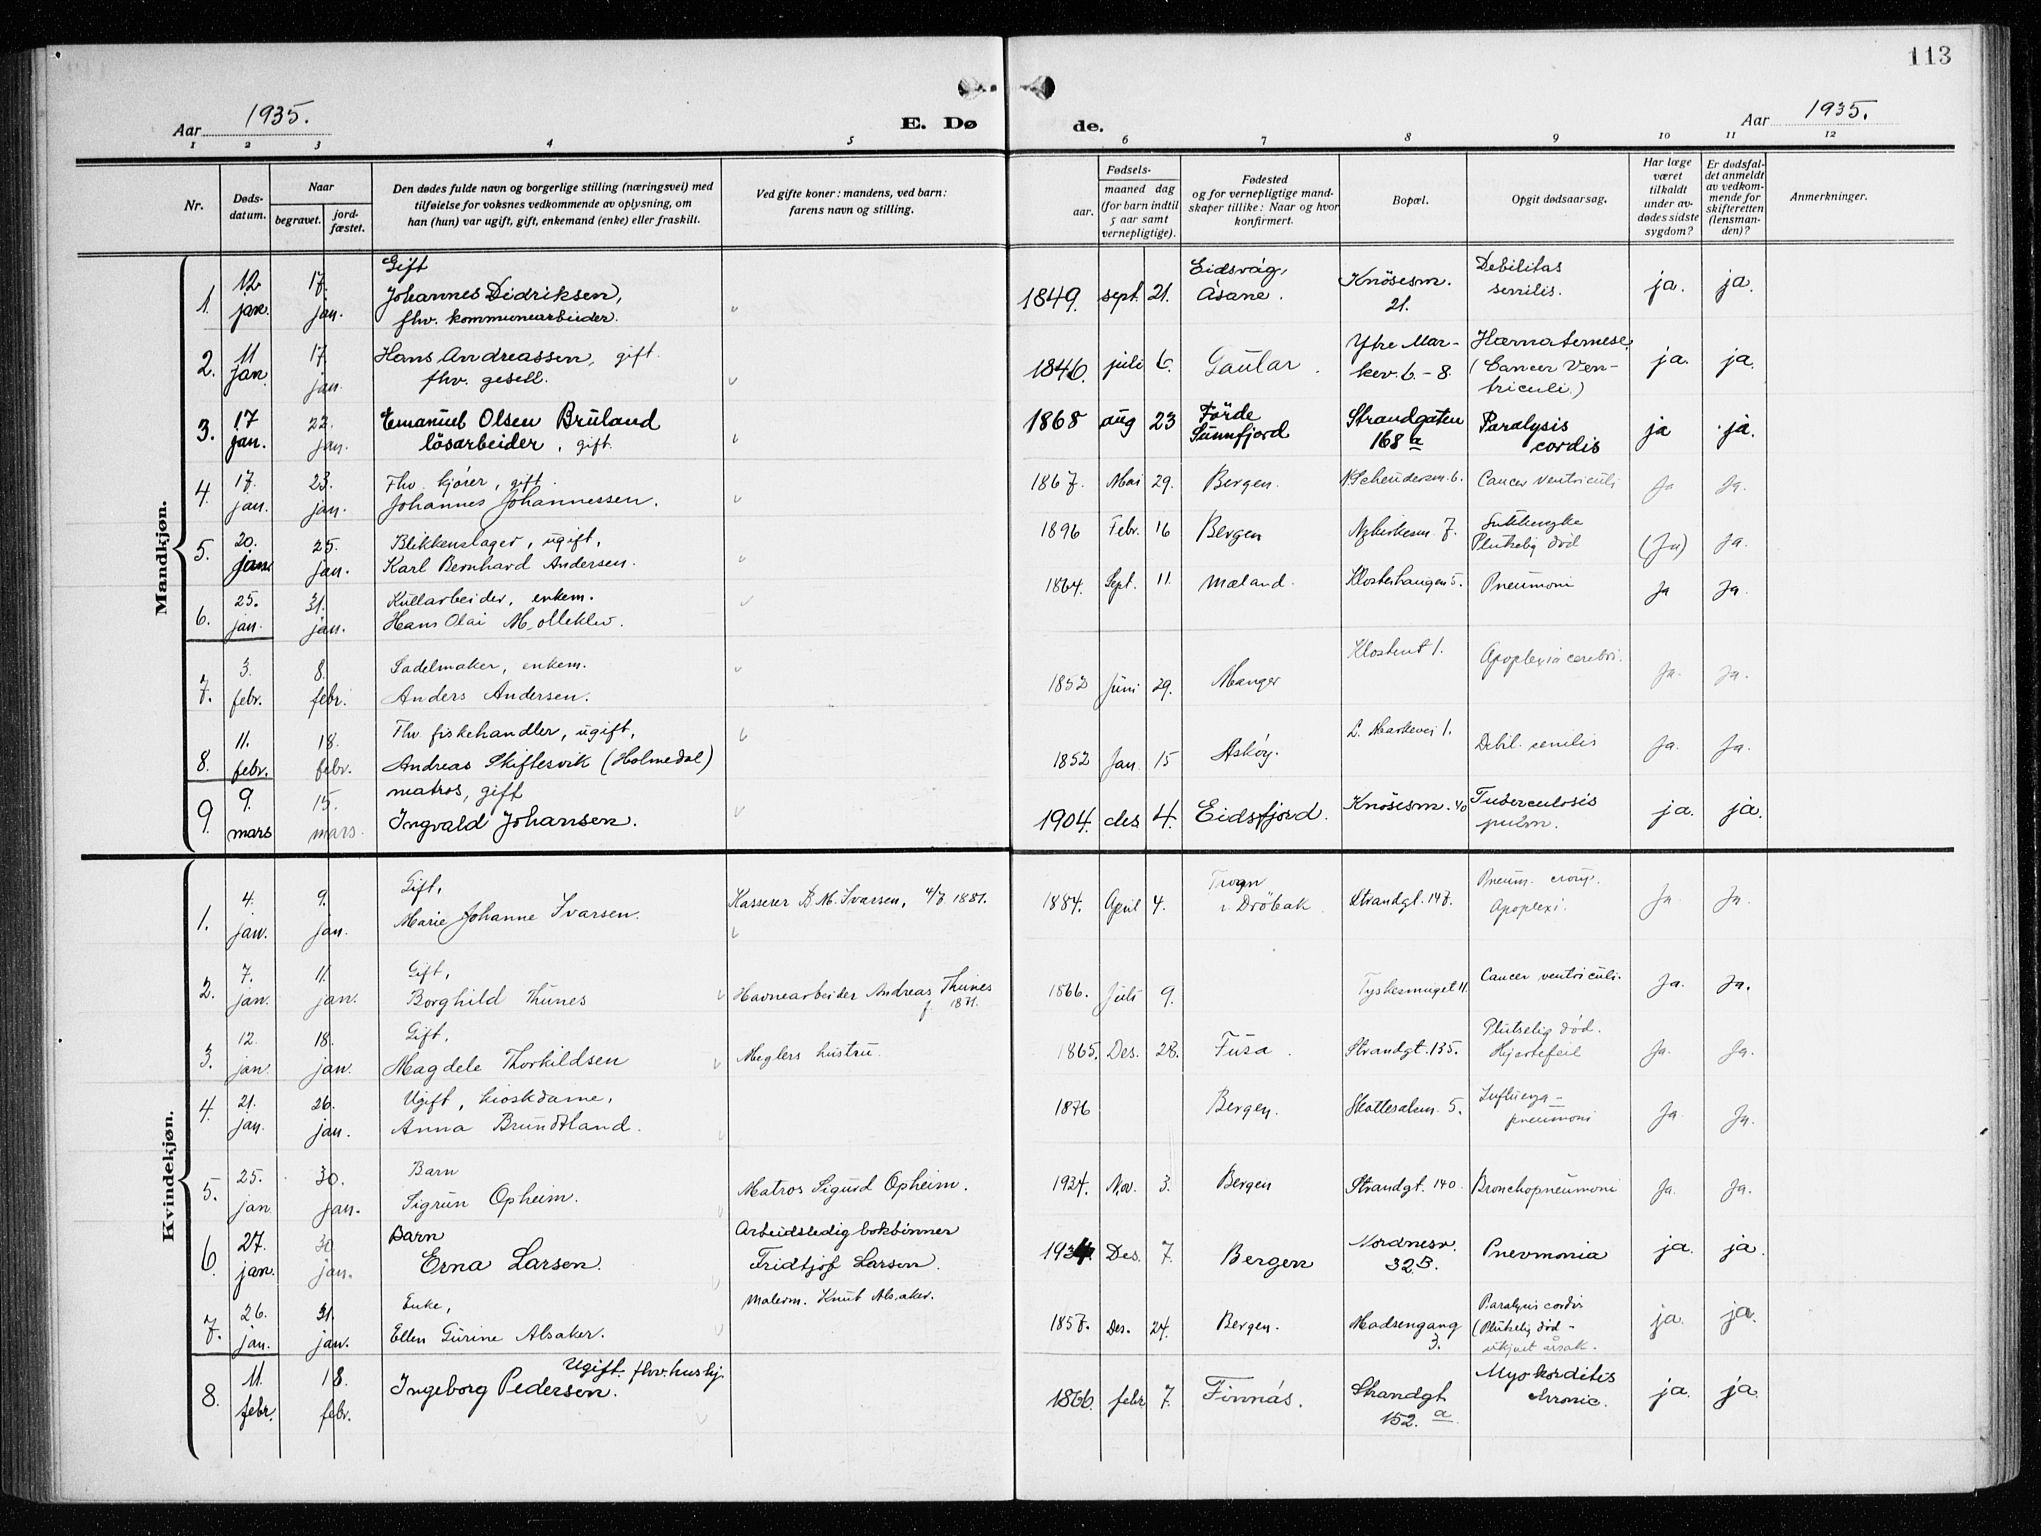 113
Aar 1935.
E. Døde.
Aar 1935.
1 2 3 4 5 6 7 8 9 10 11 12
Nr.
Døds-datum.
Naar
begravet.
jord-fæstet.
Den dødes fulde navn og borgerlige stilling (næringsvei) med
tilføielse for voksnes vedkommende av oplysning, om
han (hun) var ugift, gift, enkemand (enke) eller fraskilt.
Ved gifte koner: mandens, ved barn:
farens navn og stilling.
Fødsels-
aar.
maaned dag
(for barn indtil
5 aar samt
vernepligtige).
Fødested
og for vernepligtige mand-
skaper tillike: Naar og hvor
konfirmert.
Bopæl.
Opgit dødsaarsag.
Har læge
været
tilkaldt
under av-
dødes sidste
sygdom?
Er dødsfal-
det anmeldt
av vedkom-
mende for
skifteretten
(lensman-
den)?
Anmerkninger.
Mandkjøn.
1. 12 jan. 17. jan. Gift Johannes Didriksen, fhv. kommunearbeider. 1849. sept. 21. Eidsvåg, Åsane. Knösesm. 21. Debilitas senilis. ja. ja.
2. 11 jan. 17 jan. Hans Andreassen, gift. fhv. gesell. 1846. juli 6. Gaular. Ytre Mar-kev. 6-8. Hæmatemese, (Cancer Ven-triculi.) ja. ja.
3. 17 jan. 22. jan. Emanuel Olsen Bruland lösarbeider, gift. 1868 aug 23 Förde Sunnfjord Strandgaten 168 a Paralysis cordis ja ja.
4. 17. jan. 23. jan. Fhv. kjörer, gift. Johannes Johannessen. 1867. Mai 29. Bergen. N. 6. Cancer ventriculi Ja Ja.
5. 20. jan. 25. jan. Blikkenslager, ugift, Karl Bernhard Andersen. 1896 Febr. 16 Bergen Nykirkesm. 7. Sukkersyke Plutselig död (Ja) Ja.
6. 25. jan. 31. jan. Kullarbeider, enkem. Hans Olai M. olleklev. 1864. Sept. 11. Mæland. Klosterhaugen 5. Pneumoni Ja Ja.
7. 3. febr. 8. febr. Sadelmaker, enkem. Anders Andersen. 1852 Juni 29. Manger Klostent 1. Apoplexia cerebri. Ja. Ja.
8. 11. febr. 18. febr. Fhv fiskehandler, ugift, Andreas Skiftesvik (Holmedal) 1852 Jan. 15 Asköy. L. Markevei 1. Debil. senilis Ja. Ja.
9. 9. mars 15. mars. matros, gift Ingvald Johansen. 1904. des 4. Eidsfjord. Knösesm. 40 Tuberculosis pulm. ja. ja.
Kvindekjøn.
1. 4. jan. 9. jan. Gift, Marie Johanne Ivarsen. Kasserer B. M. Ivarsen, 4/7 1881. 1884. April 4. Trogn i Dröbak Strandgt. 147. Pneum. croup. Apoplexi. Ja. Ja.
2. 7. jan. 11. jan. Gift, Borghild Thunes Havnearbeider Andreas Thunes f. 1871. 1866. Juli 9. Tyskesmuget 11. Cancer ventriculi. Ja. Ja.
3. 12. jan. 18. jan. Gift, Magdele Thorkildsen Meglers hustru. 1865. Des. 28. Fusa. Strandgt. 135. Plutselig död. Hjertefeil Ja. Ja.
4. 21. jan. 26. jan. Ugift, kioskdame, Anna Brundtland. 1876 Bergen. Skottesalm. 5. Influenza-pneumoni Ja. Ja.
5. 25. jan. 30. jan. Barn Sigrun Opheim. Matros Sigurd Opheim. 1934. Nov. 3. Bergen Strandgt. 140. Bronchopneumoni Ja. Ja.
6. 27. jan. 30 jan. Barn Erna Larsen. Arbeidsledig bokbinner Fridtjof Larsen. 1934. Des. 7. Bergen Nordnesv. 32 B. Pnevmonia ja. ja.
7. 26. jan. 31. jan. Enke, Ellen Gurine Alsaker. Malerm. Knut Alsaker. 1857. Des. 24. Bergen. Madsengang 3. Paralysis cordis (Plutselig död - ukjent årsak. ja. ja.
8. 11. febr. 18. febr. Ugift. fhv. hushj. Ingeborg Pedersen. 1866. febr 7. Finnås. Strandgt 152. a Myokorditis chronic. ja. ja.